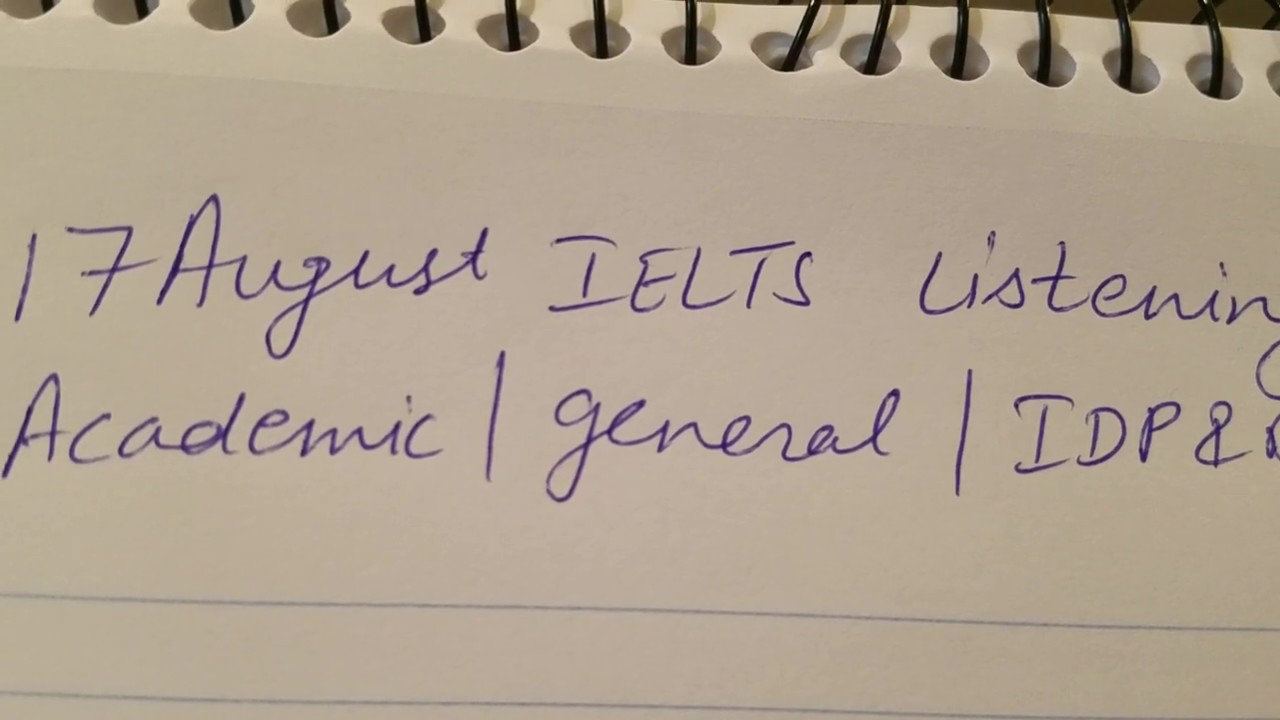 17 August IELTS Listening
Academic | general | IDP &